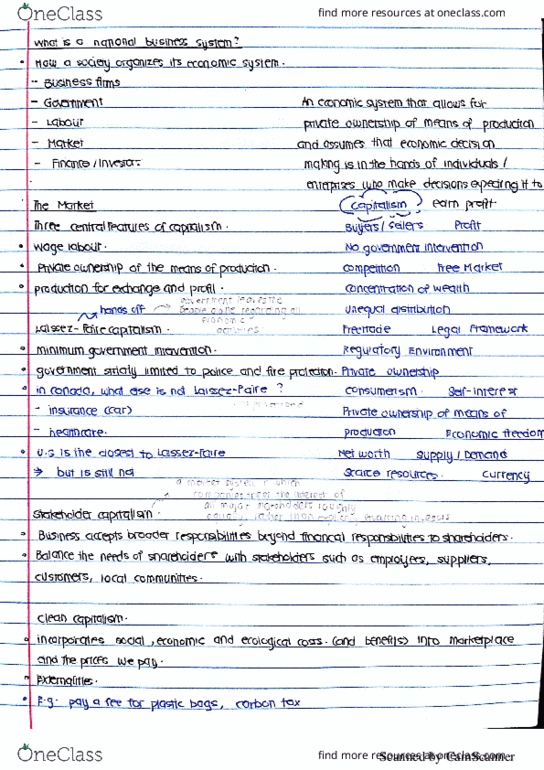 OneClass
find more resources at oneclass.com
What is a national business system?
• How a society organizes its economic system.
-- Business firms
- Government
- Labour
- Market
- Finance / Investor.
An economic system that allows for
private ownership of means of production
and assumes that economic decision
making is in the hands of individuals /
enterprises who make decisions expecting it to
earn profit
The Market
Three central features of capitalism.
• wage labour.
• Private ownership of the means of production.
• production for exchange and profit.
hands off
government leaves the
people alone regarding all
economic
activities
Laissez-Faire capitalism.
• minimum government intervention.
• government strictly limited to police and fire protection.
• in canada, what else is not Laissez-Faire ?
- insurance (car)
- healthcare.
• U.S is the closest to Laissez-Faire
→ but is still not
Capitalism
Buyers / Sellers Profit
No government intervention
competition Free Market
Concentration of wealth
unequal distribution
Freetrade Legal Framework
Regulatory Environment
Private ownership
consumerism. Self-interest
Private ownership of means of
production Economic freedom
Net worth Supply / Demand
Scarce resources. Currency
a market system in which
companies meet the interest of
all major stakeholders
equally, rather than
Stakeholder capitalism.
• Business accepts broader responsibilities beyond financial responsibilities to shareholders.
• Balance the needs of shareholders with stakeholders such as employees, suppliers,
customers, local communities.
clean capitalism.
• incorporates social, economic and ecological costs. (and benefits) into marketplace
and the prices we pay.
• Externalities.
• E.g: pay a fee for plastic bags, carbon tax
OneClass
find more resources at oneclass.com
Scanned by CamScanner